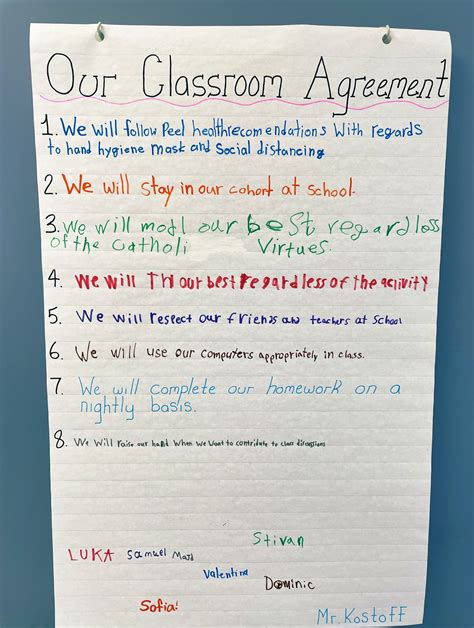 Our Classroom Agreement
1. We will follow Peel healthrecomendations With regards
to hand hygiene mask and Social distancing
2. We will stay in our cohort at school.
3. We will modl our best regardless
of the Catholi Virtues.
4. We will Tri our best regardless of the activity
5. We will respect our friends and teachers at School
6. We will use our computers appropriately in class.
7. We will complete our homework on a
nightly basis.
8. We Will raise our hand When We Want to contribute to class discussions
Stivan
LUKA Samuel
Valentina Dominic
Sofia!
Mr. Kostoff